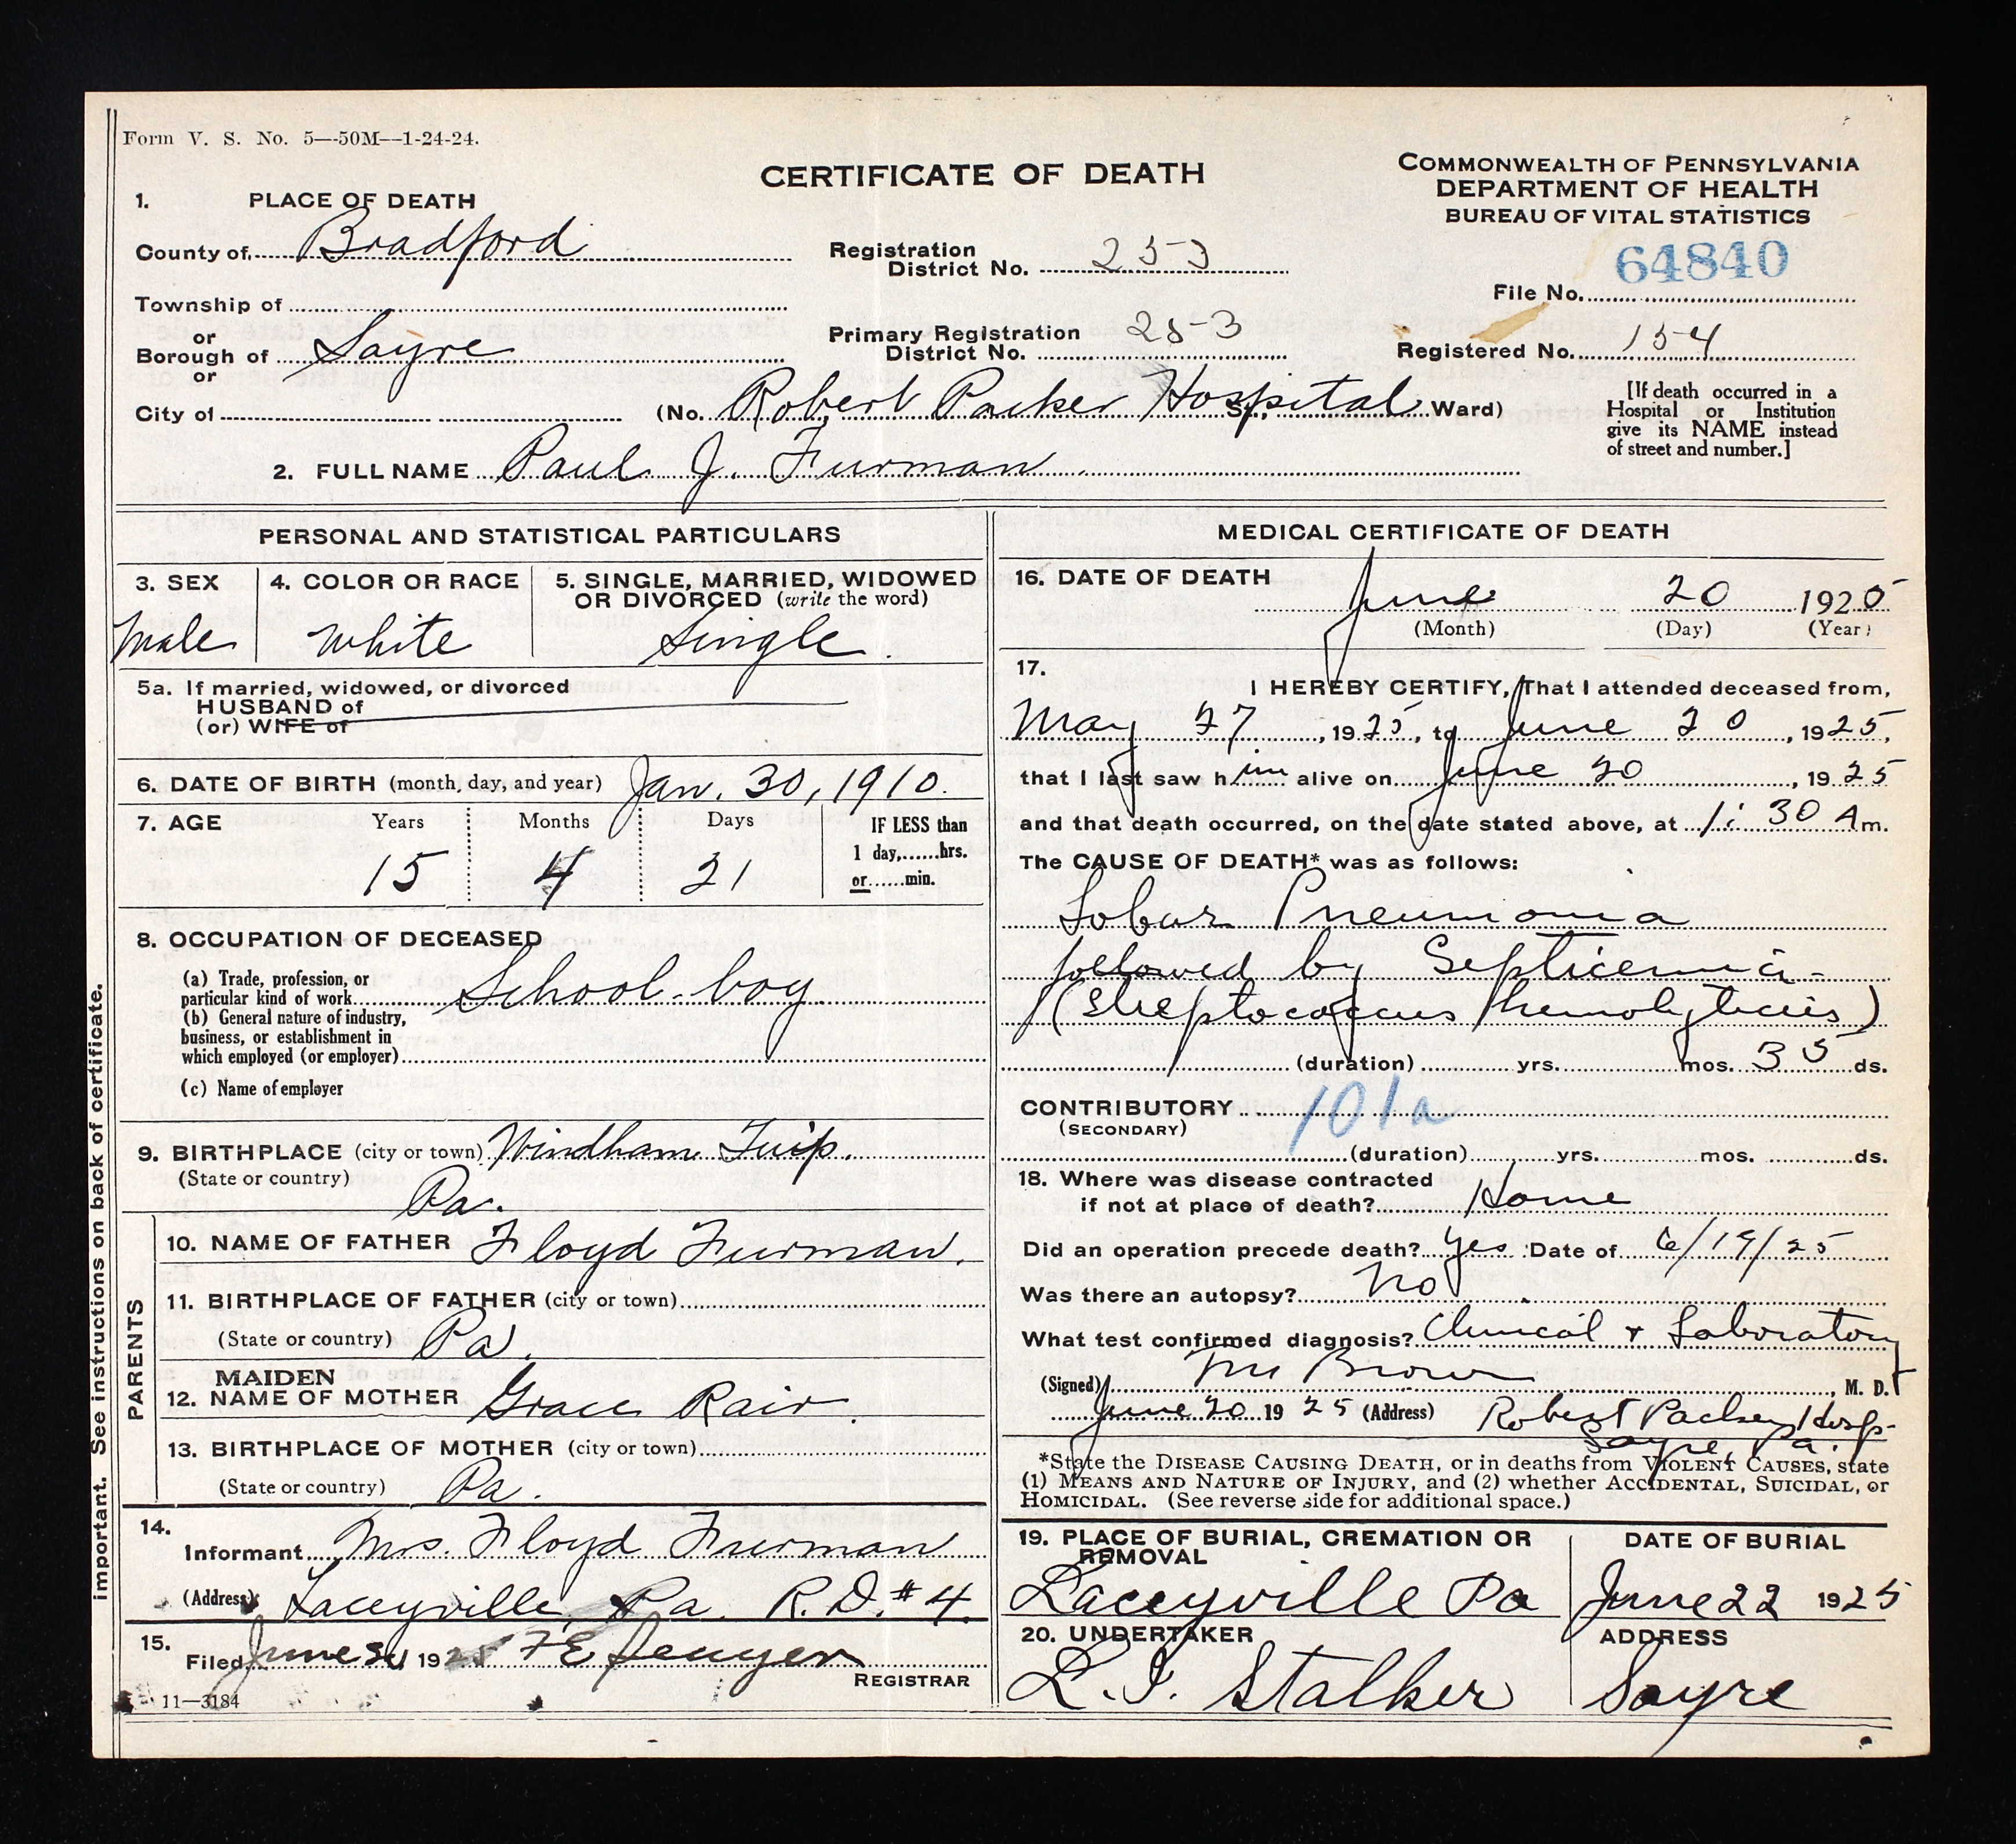 Form V. S. No. 5—50M—1-24-24.
CERTIFICATE OF DEATH
COMMONWEALTH OF PENNSYLVANIA
DEPARTMENT OF HEALTH
BUREAU OF VITAL STATISTICS
1. PLACE OF DEATH
County of Bradford
Registration District No. 253
64840
File No.
Township of
or
Borough of Sayre
or
Primary Registration District No. 253
Registered No. 154
City of (No. Robert Packer Hospital St., Ward)
[If death occurred in a Hospital or Institution give its NAME instead of street and number.]
2. FULL NAME Paul J. Furman
PERSONAL AND STATISTICAL PARTICULARS
3. SEX
Male
4. COLOR OR RACE
White
5. SINGLE, MARRIED, WIDOWED OR DIVORCED (write the word)
Single
5a. If married, widowed, or divorced
HUSBAND of
(or) WIFE of
6. DATE OF BIRTH (month, day, and year) Jan. 30, 1910.
7. AGE Years Months Days IF LESS than
1 day,......hrs.
or......min.
15 4 21
8. OCCUPATION OF DECEASED
(a) Trade, profession, or
particular kind of work School-boy
(b) General nature of industry,
business, or establishment in
which employed (or employer)
(c) Name of employer
9. BIRTHPLACE (city or town) Windham Twp.
(State or country) Pa.
PARENTS
10. NAME OF FATHER Floyd Furman.
11. BIRTHPLACE OF FATHER (city or town)
(State or country) Pa.
12. MAIDEN NAME OF MOTHER Grace Rair.
13. BIRTHPLACE OF MOTHER (city or town)
(State or country) Pa.
14.
Informant Mrs. Floyd Furman
(Address) Laceyville, Pa. R.D. #4.
15.
Filed June 1925 F E
REGISTRAR
11—3184
MEDICAL CERTIFICATE OF DEATH
16. DATE OF DEATH
June 20 1925
(Month) (Day) (Year)
17.
I HEREBY CERTIFY, That I attended deceased from,
May 27, 1925, to June 20, 1925,
that I last saw him alive on June 20, 1925
and that death occurred, on the date stated above, at 1:30 A m.
The CAUSE OF DEATH* was as follows:
Lobar Pneumonia
followed by Septicemia-
(Streptococcus hemolyticus)
(duration) yrs. mos. 35 ds.
CONTRIBUTORY 101a
(SECONDARY)
(duration) yrs. mos. ds.
18. Where was disease contracted
if not at place of death? Home
Did an operation precede death? Yes Date of 6/19/25
Was there an autopsy? No
What test confirmed diagnosis? Clinical + Laboratory
(Signed) Brown, M. D.
June 20 1925 (Address) Robert Packer Hosp-
Sayre, Pa.
*State the DISEASE CAUSING DEATH, or in deaths from VIOLENT CAUSES, state
(1) MEANS AND NATURE OF INJURY, and (2) whether ACCIDENTAL, SUICIDAL, or
HOMICIDAL. (See reverse side for additional space.)
19. PLACE OF BURIAL, CREMATION OR REMOVAL
Laceyville Pa
DATE OF BURIAL
June 22 1925
20. UNDERTAKER
L. I. Stalker
ADDRESS
Sayre
important. See instructions on back of certificate.